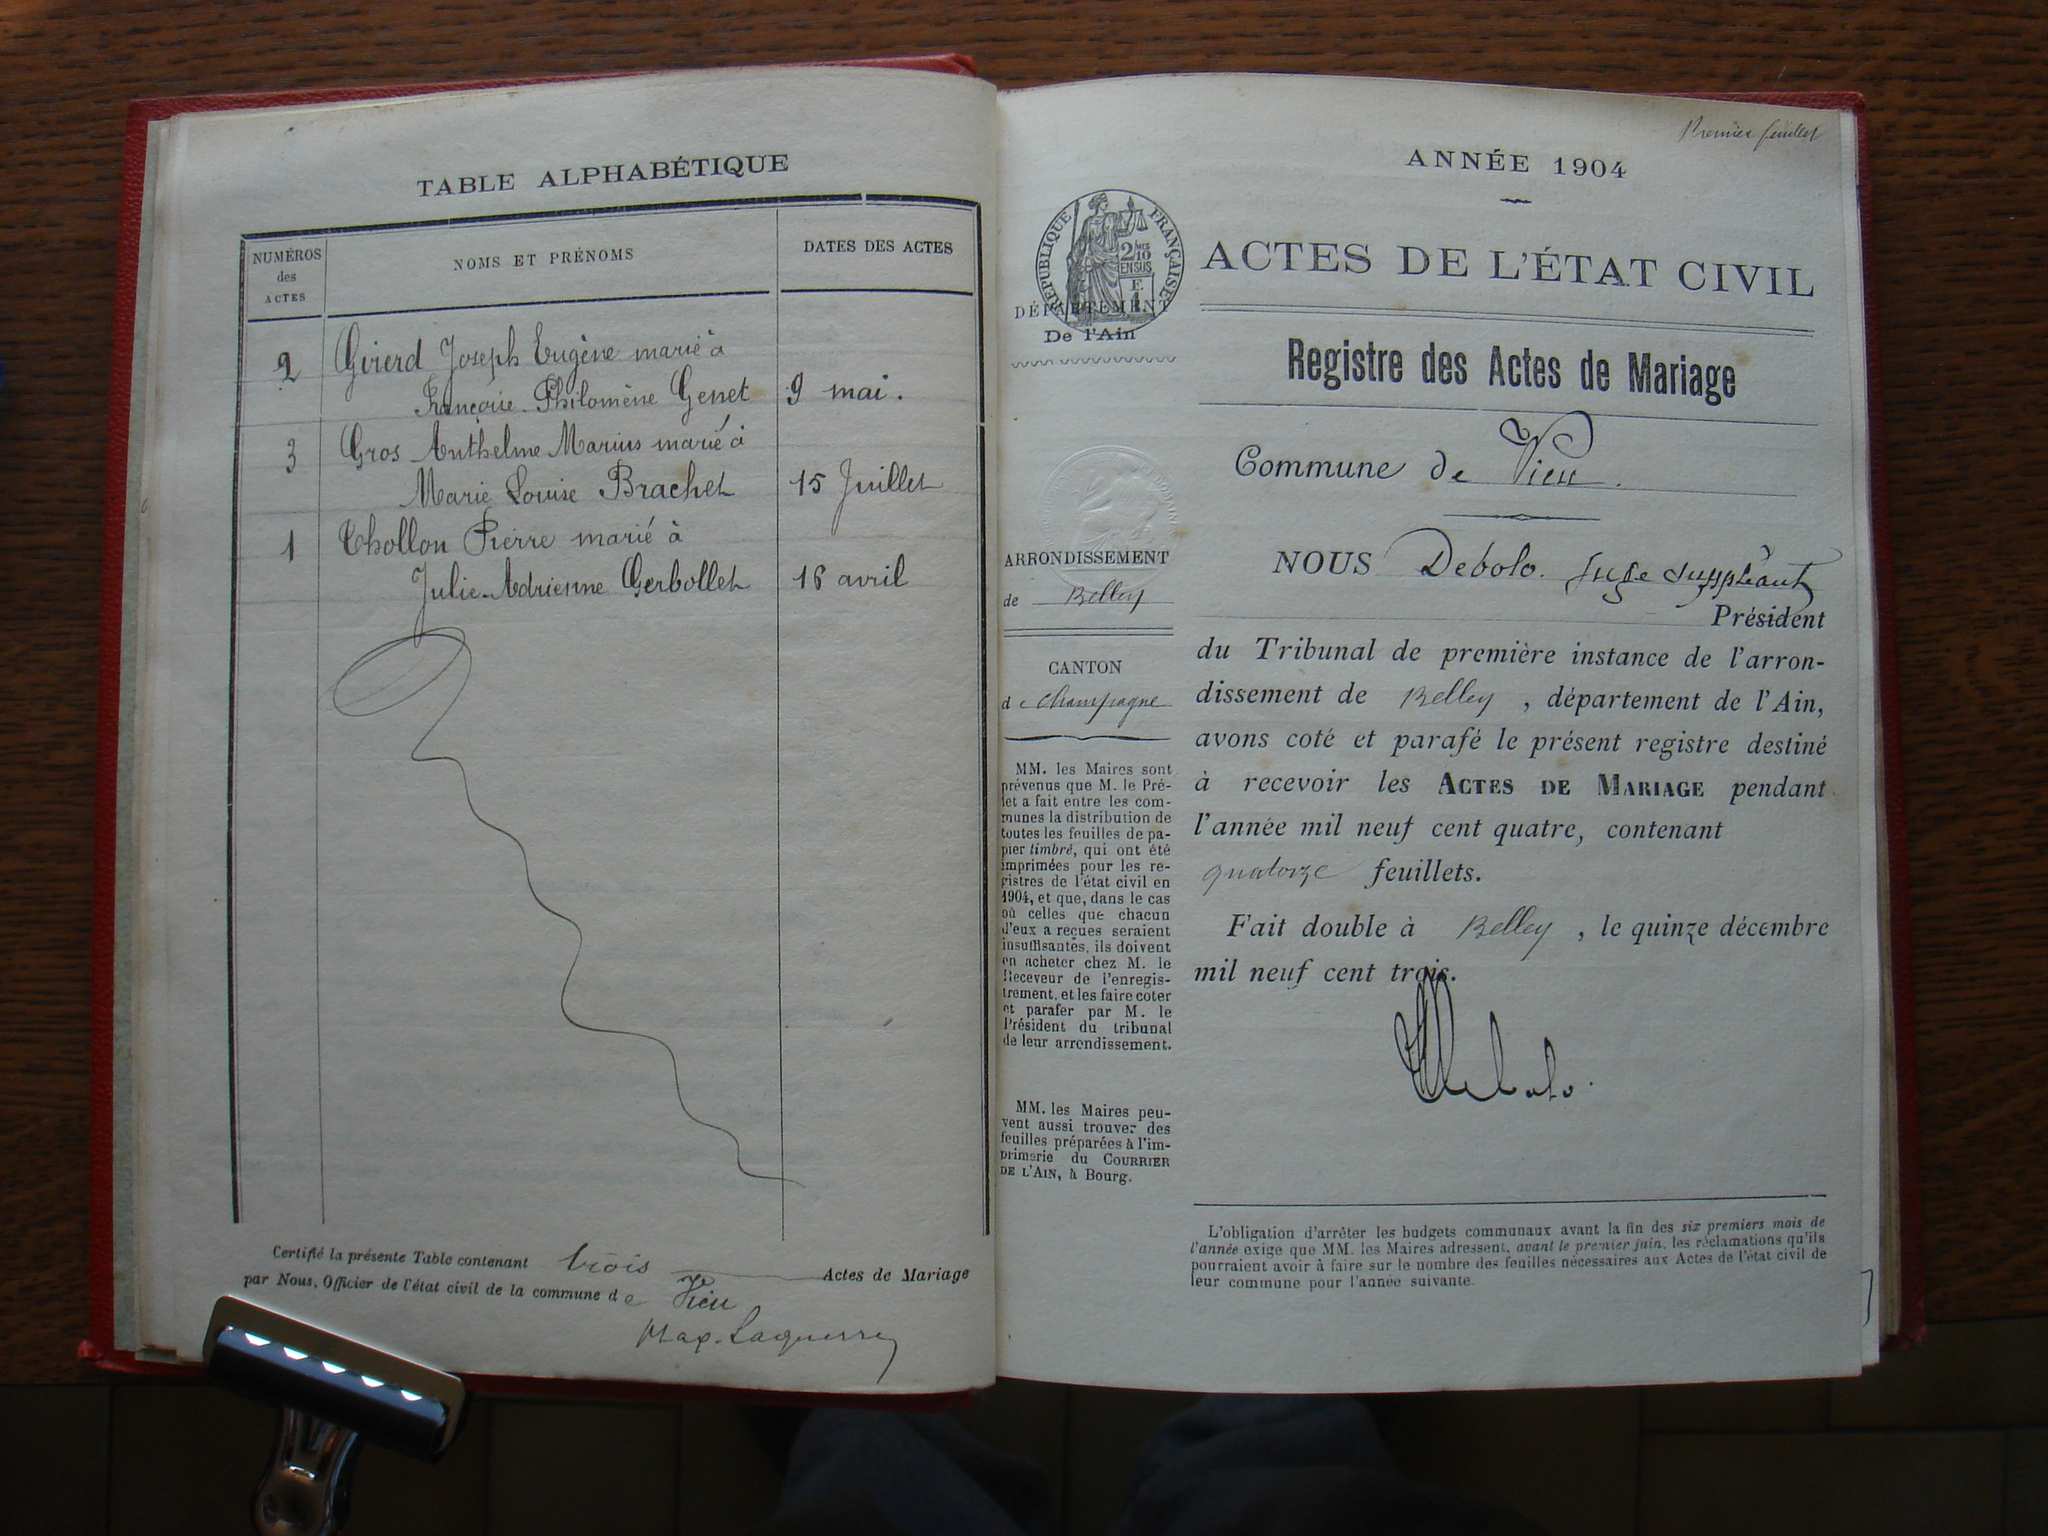 TABLE ALPHABÉTIQUE
NUMÉROS
des
ACTES
NOMS ET PRÉNOMS
DATES DES ACTES
2 Girerd Joseph Eugène marié à
Françoise Philomène Genet 9 mai.
3 Gros Anthelme Marius marié à
Marie Louise Brachet 15 Juillet
1 Thollon Pierre marié à
Julie-Adrienne Gerbollet 16 avril
Certifié la présente Table contenant trois Actes de Mariage
par Nous, Officier de l'état civil de la commune de Vieu
Max. Laguerre
Premier feuillet
ANNÉE 1904
RÉPUBLIQUE FRANÇAISE
2/10
EN SUS
DÉPARTEMENT
De l'Ain
ACTES DE L'ÉTAT CIVIL
Registre des Actes de Mariage
Commune de Vieu.
ARRONDISSEMENT
de Belley
CANTON
de Champagne
MM. les Maires sont
prévenus que M. le Pré-
fet a fait entre les com-
munes la distribution de
toutes les feuilles de pa-
pier timbré, qui ont été
imprimées pour les re-
gistres de l'état civil en
1904, et que, dans le cas
où celles que chacun
d'eux a reçues seraient
insuffisantes, ils doivent
en acheter chez M. le
Receveur de l'enregis-
trement, et les faire coter
et parafer par M. le
Président du tribunal
de leur arrondissement.
MM. les Maires peu-
vent aussi trouver des
feuilles préparées à l'im-
primerie du COURRIER
DE L'AIN, à Bourg.
NOUS Debolo. Juge suppléant
Président
du Tribunal de première instance de l'arron-
dissement de Belley, département de l'Ain,
avons coté et parafé le présent registre destiné
à recevoir les ACTES DE MARIAGE pendant
l'année mil neuf cent quatre, contenant
quatorze feuillets.
Fait double à Belley, le quinze décembre
mil neuf cent trois.
Debolo.
L'obligation d'arrêter les budgets communaux avant la fin des six premiers mois de
l'année exige que MM. les Maires adressent, avant le premier juin, les réclamations qu'ils
pourraient avoir à faire sur le nombre des feuilles nécessaires aux Actes de l'état civil de
leur commune pour l'année suivante.